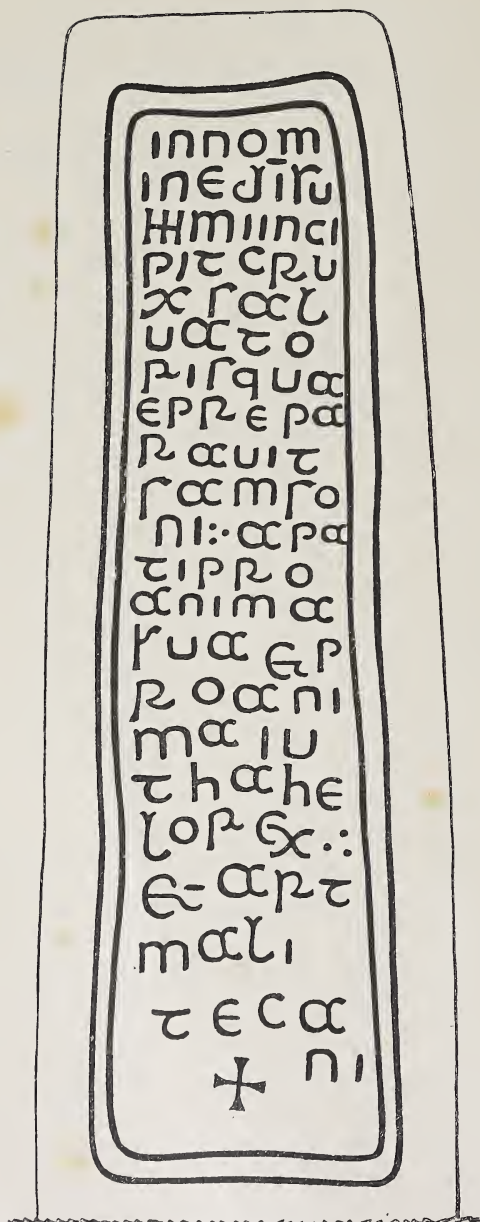 innom
inedīsu
mmiinci
pit cru
x sal
uato
risqua
eprepa
rauit
samso
ni:·apa
tipro
anima
sua & p
roani
maiu
thahe
lorex∴
& art
mali
teca
✠ ni